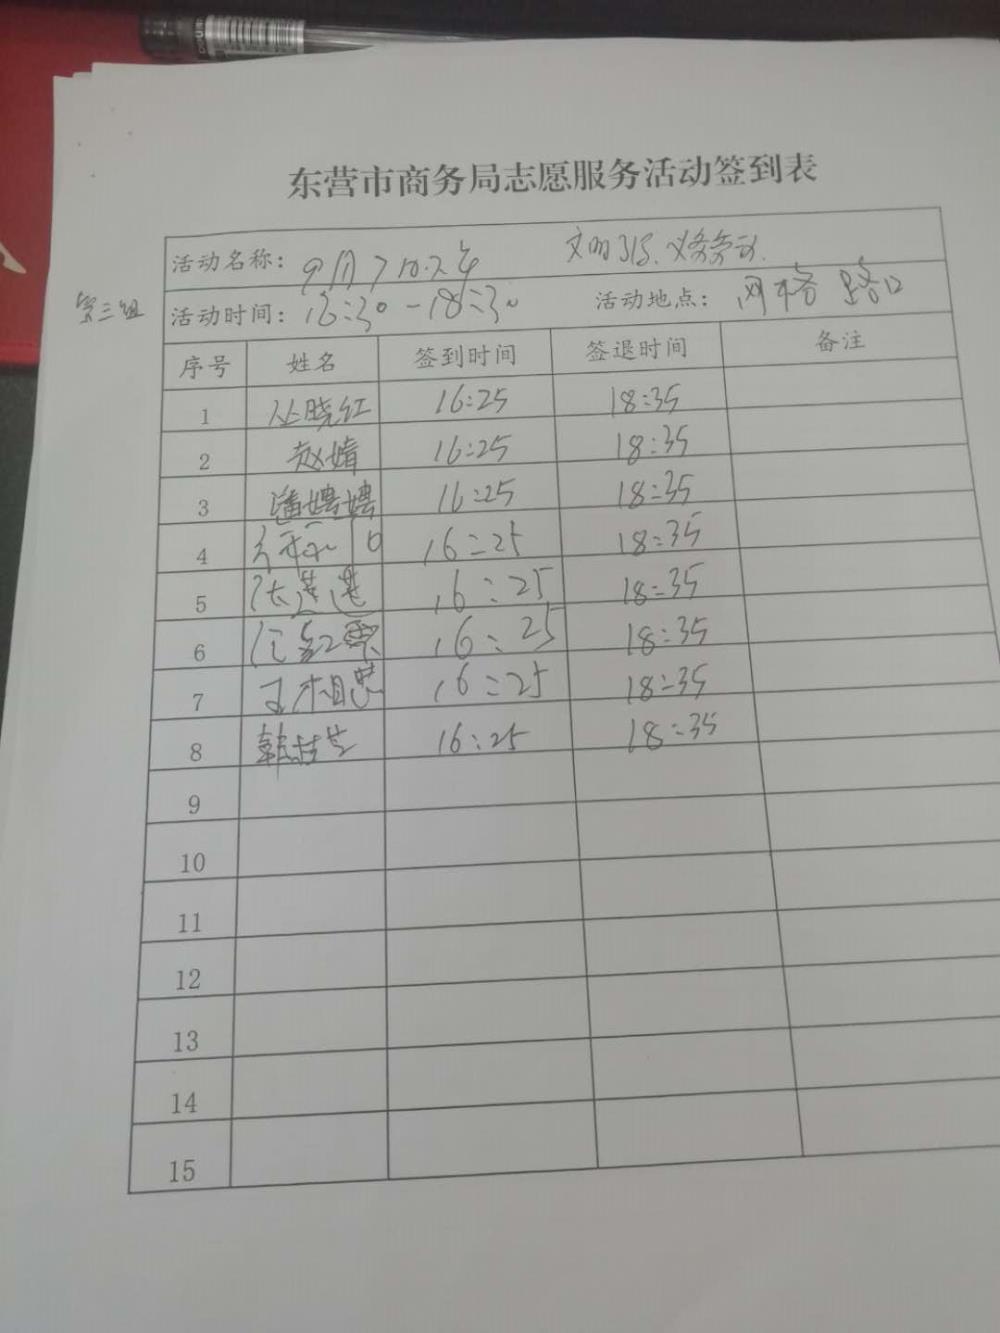 东营市商务局志愿服务活动签到表
活动名称: 9月7日 文明 义务劳动.
第三组
活动时间: 16:30-18:30 活动地点: 网格 路口
序号 姓名 签到时间 签退时间 备注
1 丛晓红 16:25 18:35
2 赵婧 16:25 18:35
3 潘娉娉 16:25 18:35
4 16:25 18:35
5 16:25 18:35
6 16:25 18:35
7 王相 16:25 18:35
8 韩 16:25 18:35
9
10
11
12
13
14
15